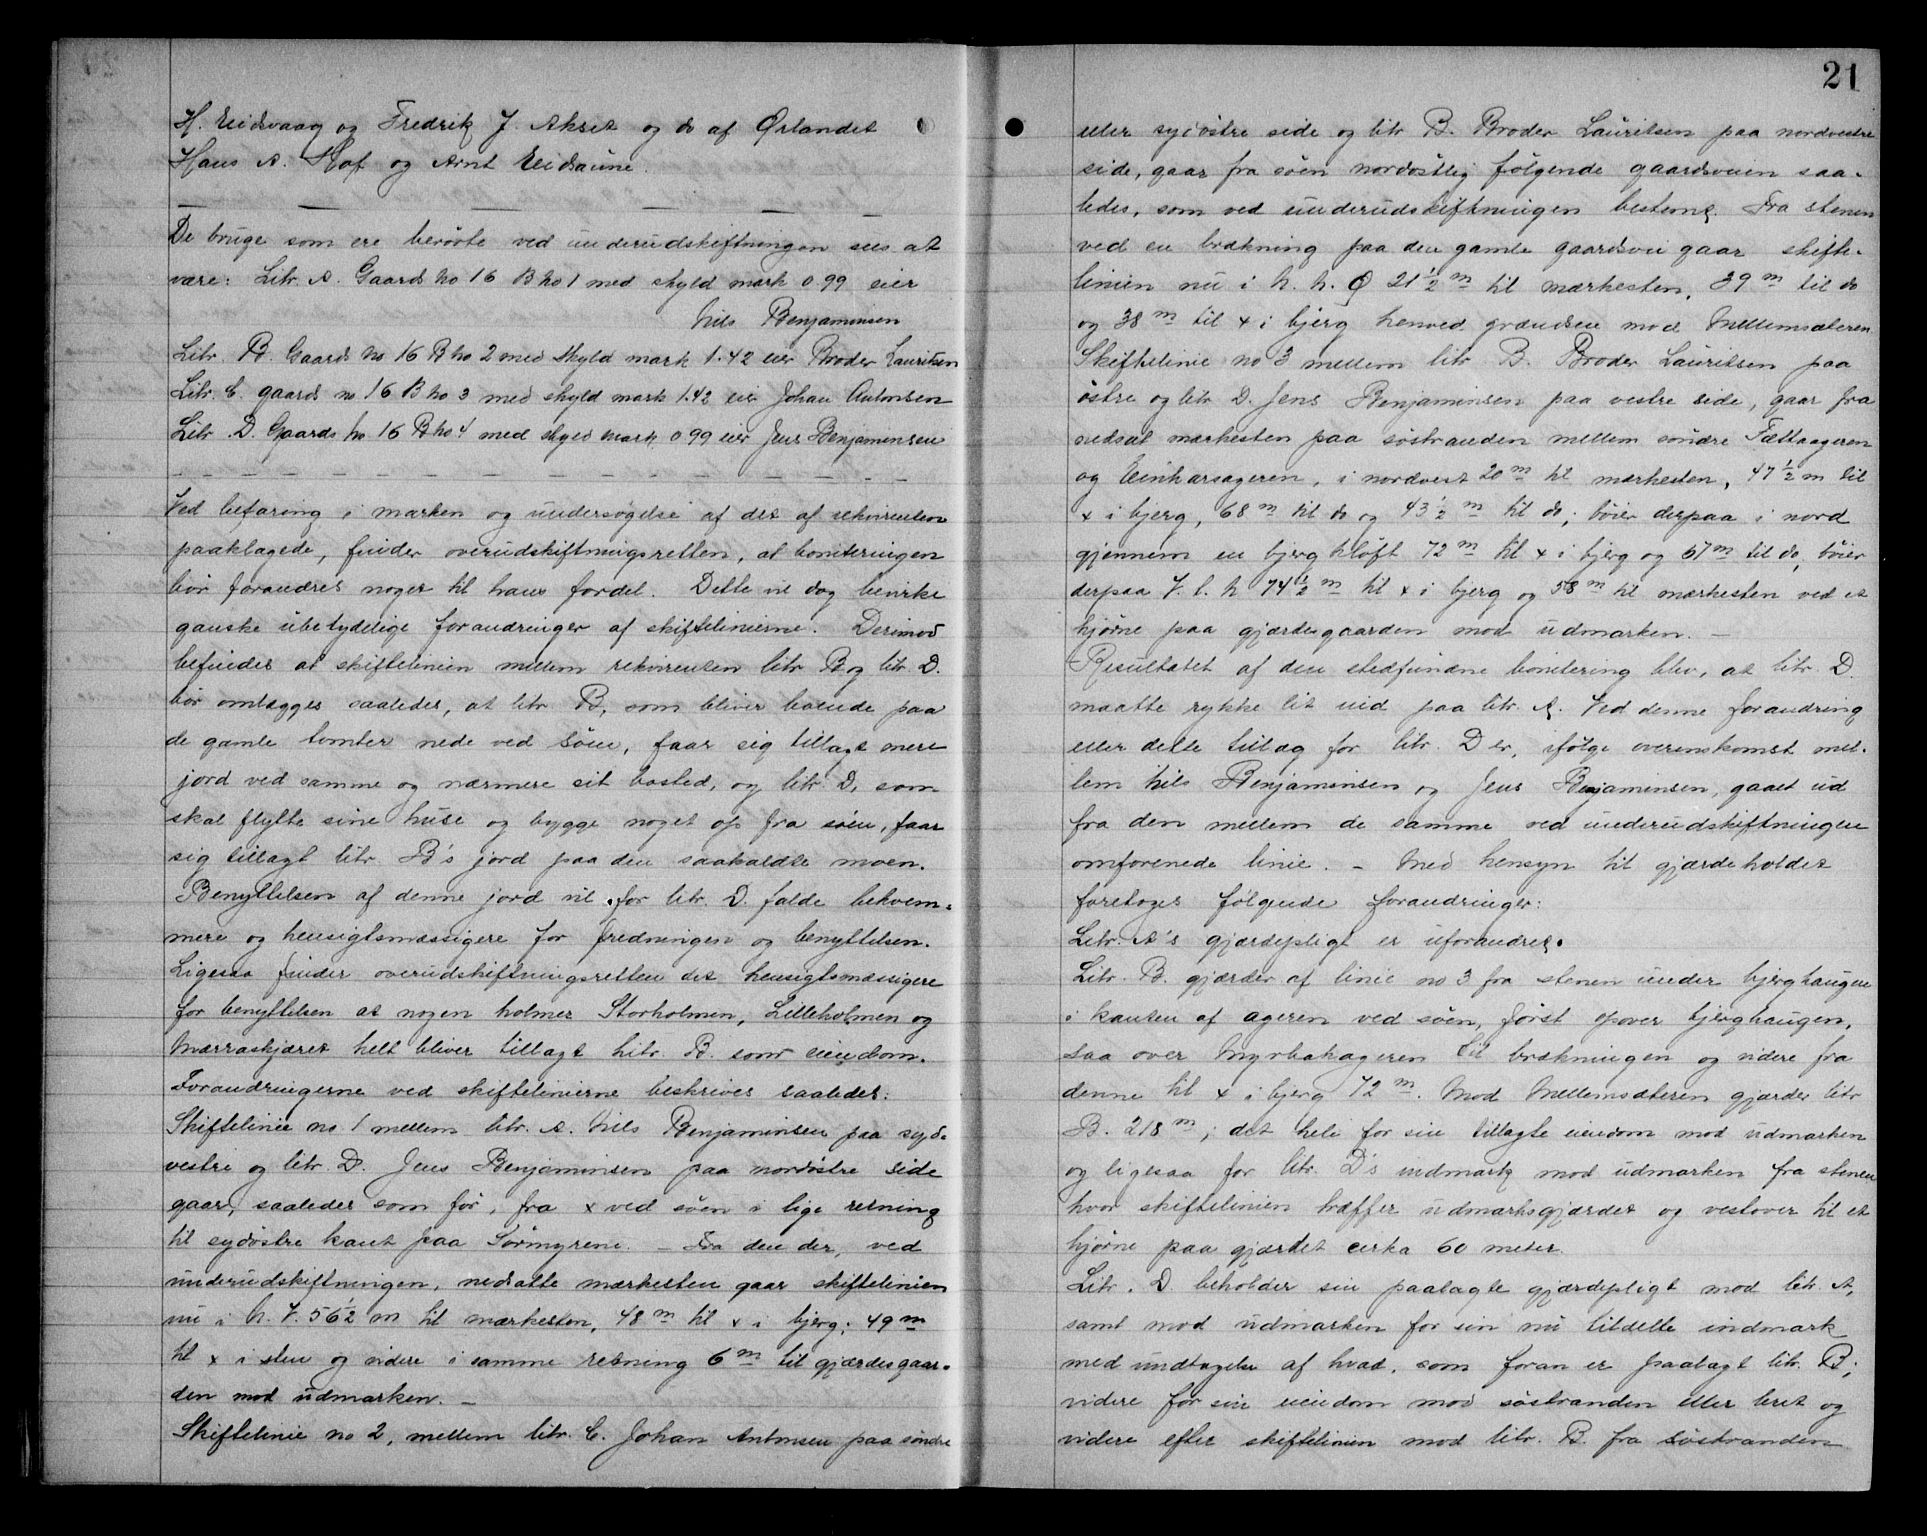 H. Eidsvaag og Fredrik J. Akset og do af Ørlandet
Hans A. Hof og Arnt Eidsaune.
De bruge som ere berörte ved underudskiftningen sees at
være: Litr. A. Gaards No 16 B No 1 med skyld mark 0.99 eier
Nils Benjaminsen
Litr. B. Gaards No 16 B No 2 med skyld mark 1.42 eier Broder Lauritsen
Litr. C. gaards no 16 B No 3 med skyld mark 1.42 eier Johan Antonsen
Litr. D. Gaards No 16 B No 4 med skyld mark 0.99 eier Jens Benjaminsen
Ved befaring i marken og undersøgelse af det af rekvirenten
paaklagede, finder overudskiftningsretten, at boniteringen
bör forandres noget til hans fordel. Dette vil dog bevirke
ganske übetydelige forandringer af skiftelinierne. Derimod
befindes at skiftelinien mellem rekvirenten litr. B og litr. D.
bör omlægges saaledes, at litr. B, som bliver boende paa
de gamle tomter nede ved söen, faar sig tillagt mere
jord ved samme og nærmere sit bosted, og litr. D, som
skal flytte sine huse og bygge noget op fra söen, faar
sig tillagt litr. B's jord paa den saakaldte moen.
Benyttelsen af denne jord vil for litr. D. falde bekvem-
mere og hensigtsmæssigere for fredningen og benyttelsen.
Ligesaa finder overudskiftningsretten det hensigtsmæssigere
for benyttelsen at nogen holmer Storholmen, Lilleholmen og
Mærraskjæret helt bliver tillagt litr. B. som eiendom.
Forandringerne ved skiftelinierne beskrives saaledes:
Skiftelinie no 1 mellem litr. A. Nils Benjaminsen paa syd-
vestre og litr. D. Jens Benjaminsen paa nordöstre side
gaar, saaledes som för, fra x ved söen i lige retning
til sydöstre kant paa Sörmyrene. – Fra den der, ved
underudskiftningen, nedsatte mærkesten gaar skiftelinien
nu i N. V. 56 1/2 m til mærkesten, 48 m til x i bjerg; 49 m
til x i sten og videre i samme retning 6 m til gjærdesgaar-
den mod udmarken. –
Skiftelinie no 2, mellem litr. C. Johan Antonsen paa söndre
21
eller sydöstre side og litr B. Broder Lauritsen paa nordvestre
side, gaar fra söen nordöstlig følgende gaardsveien saa-
ledes, som ved underudskiftningen bestemt. Fra stenen
ved en brækning paa den gamle gaardsvei gaar skifte-
linien nu i N. N. Ø 21 1/2 m til mærkesten, 39 m til do
og 38 m til x i bjerg henved grændsen mod Mellemsæteren.
Skiftelinie no 3 mellem litr. B. Broder Lauritsen paa
östre og litr. D. Jens Benjaminsen paa vestre side, gaar fra
nedsat mærkesten paa söstranden mellem söndre Fættaageren
og Einharsageren, i nordvest 20 m til mærkesten, 47 1/2 m til
x i bjerg, 68 m til do og 43 1/2 m til do; böier derpaa i nord
gjennem en bjergklöft 72 m til x i bjerg og 67 m til do, böier
derpaa V. t. N 74 1/2 m til x i bjerg og 58 m til mærkesten ved et
hjörne paa gjærdesgaarden mod udmarken. –
Resultatet af den stedfundne bonitering blev, at litr. D.
maatte rykke lit ind paa litr. A. Ved denne forandring
eller dette tillæg for litr. D er, ifölge overenskomst mel-
lem Nils Benjaminsen og Jens Benjaminsen, gaaet ud
fra den mellem de samme ved underudskiftningen
omforenede linie. – Med hensyn til gjærdeholdet
foretoges følgende forandringer:
Litr. A's gjærdepligt er uforandret.
Litr. B. gjærder af linie no 3 fra stenen under bjerghaugen
i kanten af ageren ved söen, först opover bjerghaugen,
saa over Myrbakageren til brækningen og videre fra
denne til x i bjerg 72 m. Mod Mellemsæteren gjærder litr
B. 218 m; det hele for sin tillagte eiendom mod udmarken
og ligesaa for litr. D's indmark mod udmarken fra stenen
hvor skiftelinien træffer udmarksgjærdet og vestover til et
hjørne paa gjærdet cirka 60 meter.
Litr. D. beholder sin paalagte gjærdepligt mod litr. A,
samt mod udmarken for sin nu tildelte indmark
med undtagelse af hvad, som foran er paalagt litr. B;
videre for sin eiendom mod söstranden eller leret og
videre efter skiftelinien mod litr. B. fra söstranden